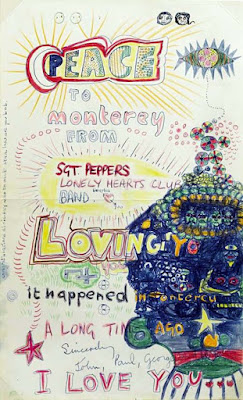 PEACE
TO
Monterey
FROM
SGT PEPPERS
LONELY HEARTS CLUB
BAND
LOVING YO
it happened in Monterey
A LONG TIME AGO
Sincerely
John, Paul, George
I LOVE YOU...